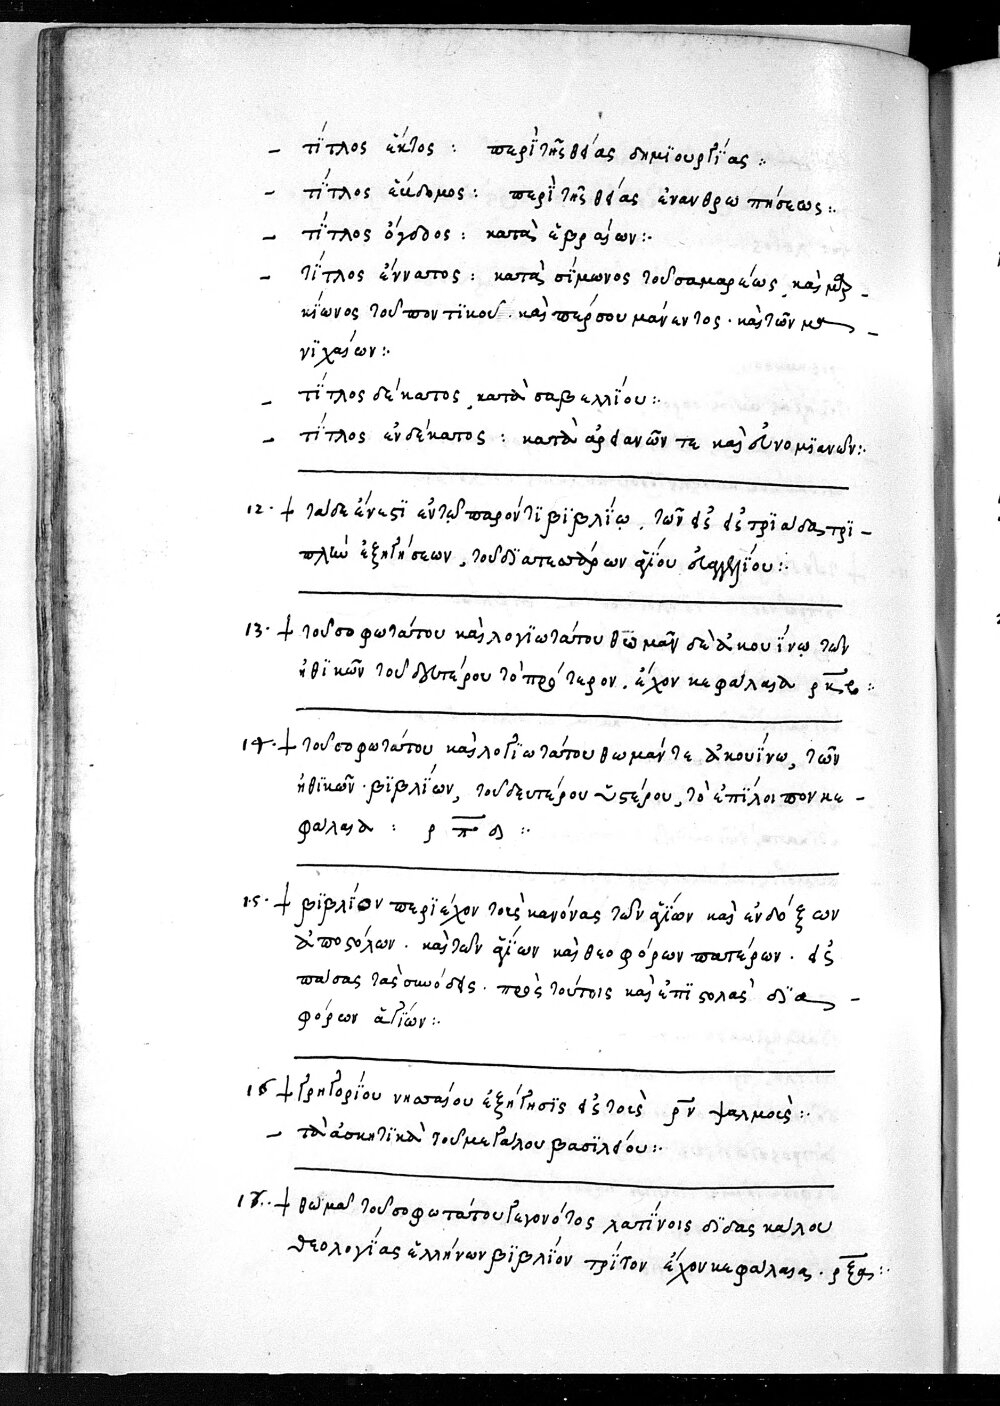 – τΐτλος ἕκτος : περῒ τῆς θείας δημϊουργΐας :.
– τΐτλος ἕβδομος : περῒ τῆς θείας ἐνανθρωπήσεως :.
– τΐτλος ὄγδοος : κατὰ ἑβραίων :.
– τΐτλος ἔννατος : κατὰ σΐμωνος τοῦ σαμαρέως, καὶ μαρ–
κΐωνος τοῦ ποντϊκοῦ · καὶ πέρσου μάνεντος · καὶ τῶν μα–
νϊχαίων :.
– τΐτλος δέκατος, κατὰ σαβελλΐου :.
– τΐτλος ἐνδέκατος : κατὰ ἀρειανῶν τε καὶ εὐνομϊανῶν :.
12 · + τάδε ἔνεστϊ ἐν τῷ παρόντϊ βϊβλΐῳ, τῶν εἰς τρϊάδας τρϊ–
πλῶν ἐξηγήσεων, τοῦ δϊὰ τεσσάρων ἁγΐου εὐαγγελΐου :.
13 · + τοῦ σοφωτάτου καὶ λογϊωτάτου θωμᾶν δὲ ἀκουΐνῳ τῶν
ἠθϊκῶν τοῦ δευτέρου τὸ πρότερον, ἔχον κεφάλαια ρκς :.
14 · + τοῦ σοφωτάτου καὶ λογϊωτάτου θωμάν τε ἀκουΐνω, τῶν
ἠθϊκῶν · βϊβλΐων, τοῦ δευτέρου ὑστέρου, τὸ ἐπΐλοιπον κε–
φάλαια : ρπδ :.
15 · + βϊβλΐον περϊέχον τοὺς κανόνας τῶν ἁγΐων καὶ ἐνδόξων
ἀποστόλων · καὶ τῶν ἁγΐων καὶ θεοφόρων πατέρων · εἰς
πάσας τὰς συνόδους · πρὸς τούτοις καὶ ἐπϊστολὰς δϊα–
φόρων ἁγΐων :.
16 + Γρηγορΐου νησσαίου ἐξήγησϊς εἰς τοὺς ρν ψαλμοὺς :.
– τὰ ἀσκητϊκὰ τοῦ μεγάλου βασϊλείου :.
17 · + θωμᾶ τοῦ σοφωτάτου γεγονότος λατΐνοις δϊδασκάλου
θεολογΐας ἑλλήνων βϊβλΐον τρΐτον ἔχον κεφάλαια · ρξα :.